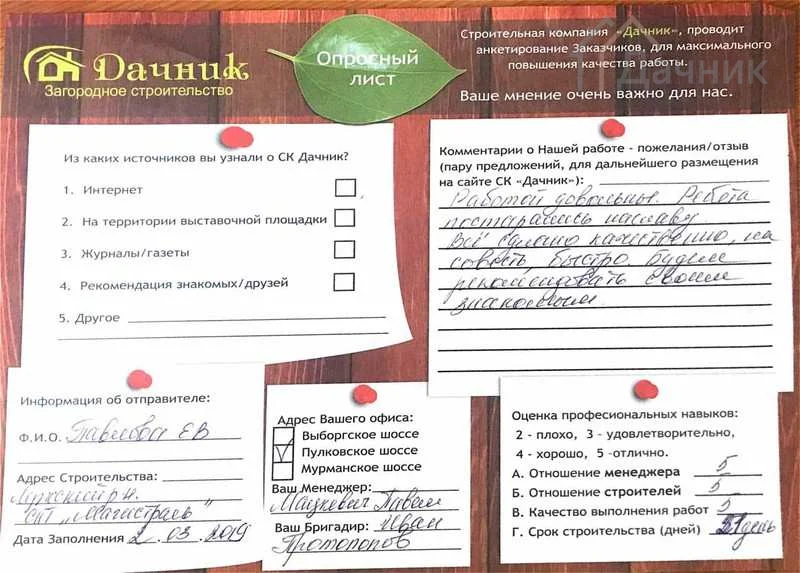 Дачник
Загородное строительство
Опросный
лист
Строительная компания «Дачник», проводит
анкетирование Заказчиков, для максимального
повышения качества работы.
Ваше мнение очень важно для нас.
Дачник
Из каких источников вы узнали о СК Дачник?
1. Интернет
2. На территории выставочной площадки
3. Журналы/газеты
4. Рекомендация знакомых/друзей
5. Другое
Комментарии о Нашей работе - пожелания/отзыв
(пару предложений, для дальнейшего размещения
на сайте СК «Дачник»):
Работой довольны. Ребята
постарались наславу.
Всё сделано качественно, на
совесть, быстро. Будем
рекомендовать своим
знакомым.
Информация об отправителе:
Ф.И.О. Павлова ЕВ
Адрес Строительства:
Лужский р-н.
снт „Магистраль"
Дата Заполнения 2. 03. 2019
Адрес Вашего офиса:
Выборгское шоссе
Пулковское шоссе
Мурманское шоссе
Ваш Менеджер:
Мацкевич Павел
Ваш Бригадир: Иван
Протопопов
Оценка професиональных навыков:
2 - плохо, 3 - удовлетворительно,
4 - хорошо, 5 -отлично.
А. Отношение менеджера 5
Б. Отношение строителей 5
В. Качество выполнения работ 5
Г. Срок строительства (дней) день